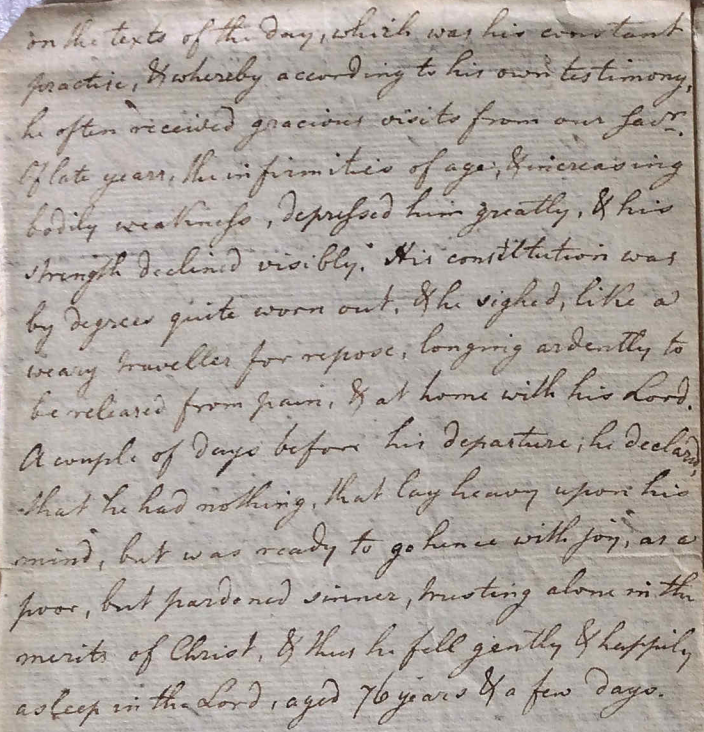 on the texts of the day, which was his constant
practise, & whereby according to his own testimony,
he often received gracious visits from our Savr.
Of late years, the infirmities of age, & increasing
bodily weakness, depressed him greatly, & his
strength declined visibly. His constitution was
by degrees quite worn out, & he sighed, like a
weary traveller for repose, longing ardently to
be released from pain, & at home with his Lord.
A couple of days before his departure, he declard,
that he had nothing, that lay heavy upon his
mind, but was ready to go hence with joy, as a
poor, but pardoned sinner, trusting alone in the
merits of Christ, & thus he fell gently & happily
asleep in the Lord, aged 76 years & a few days.